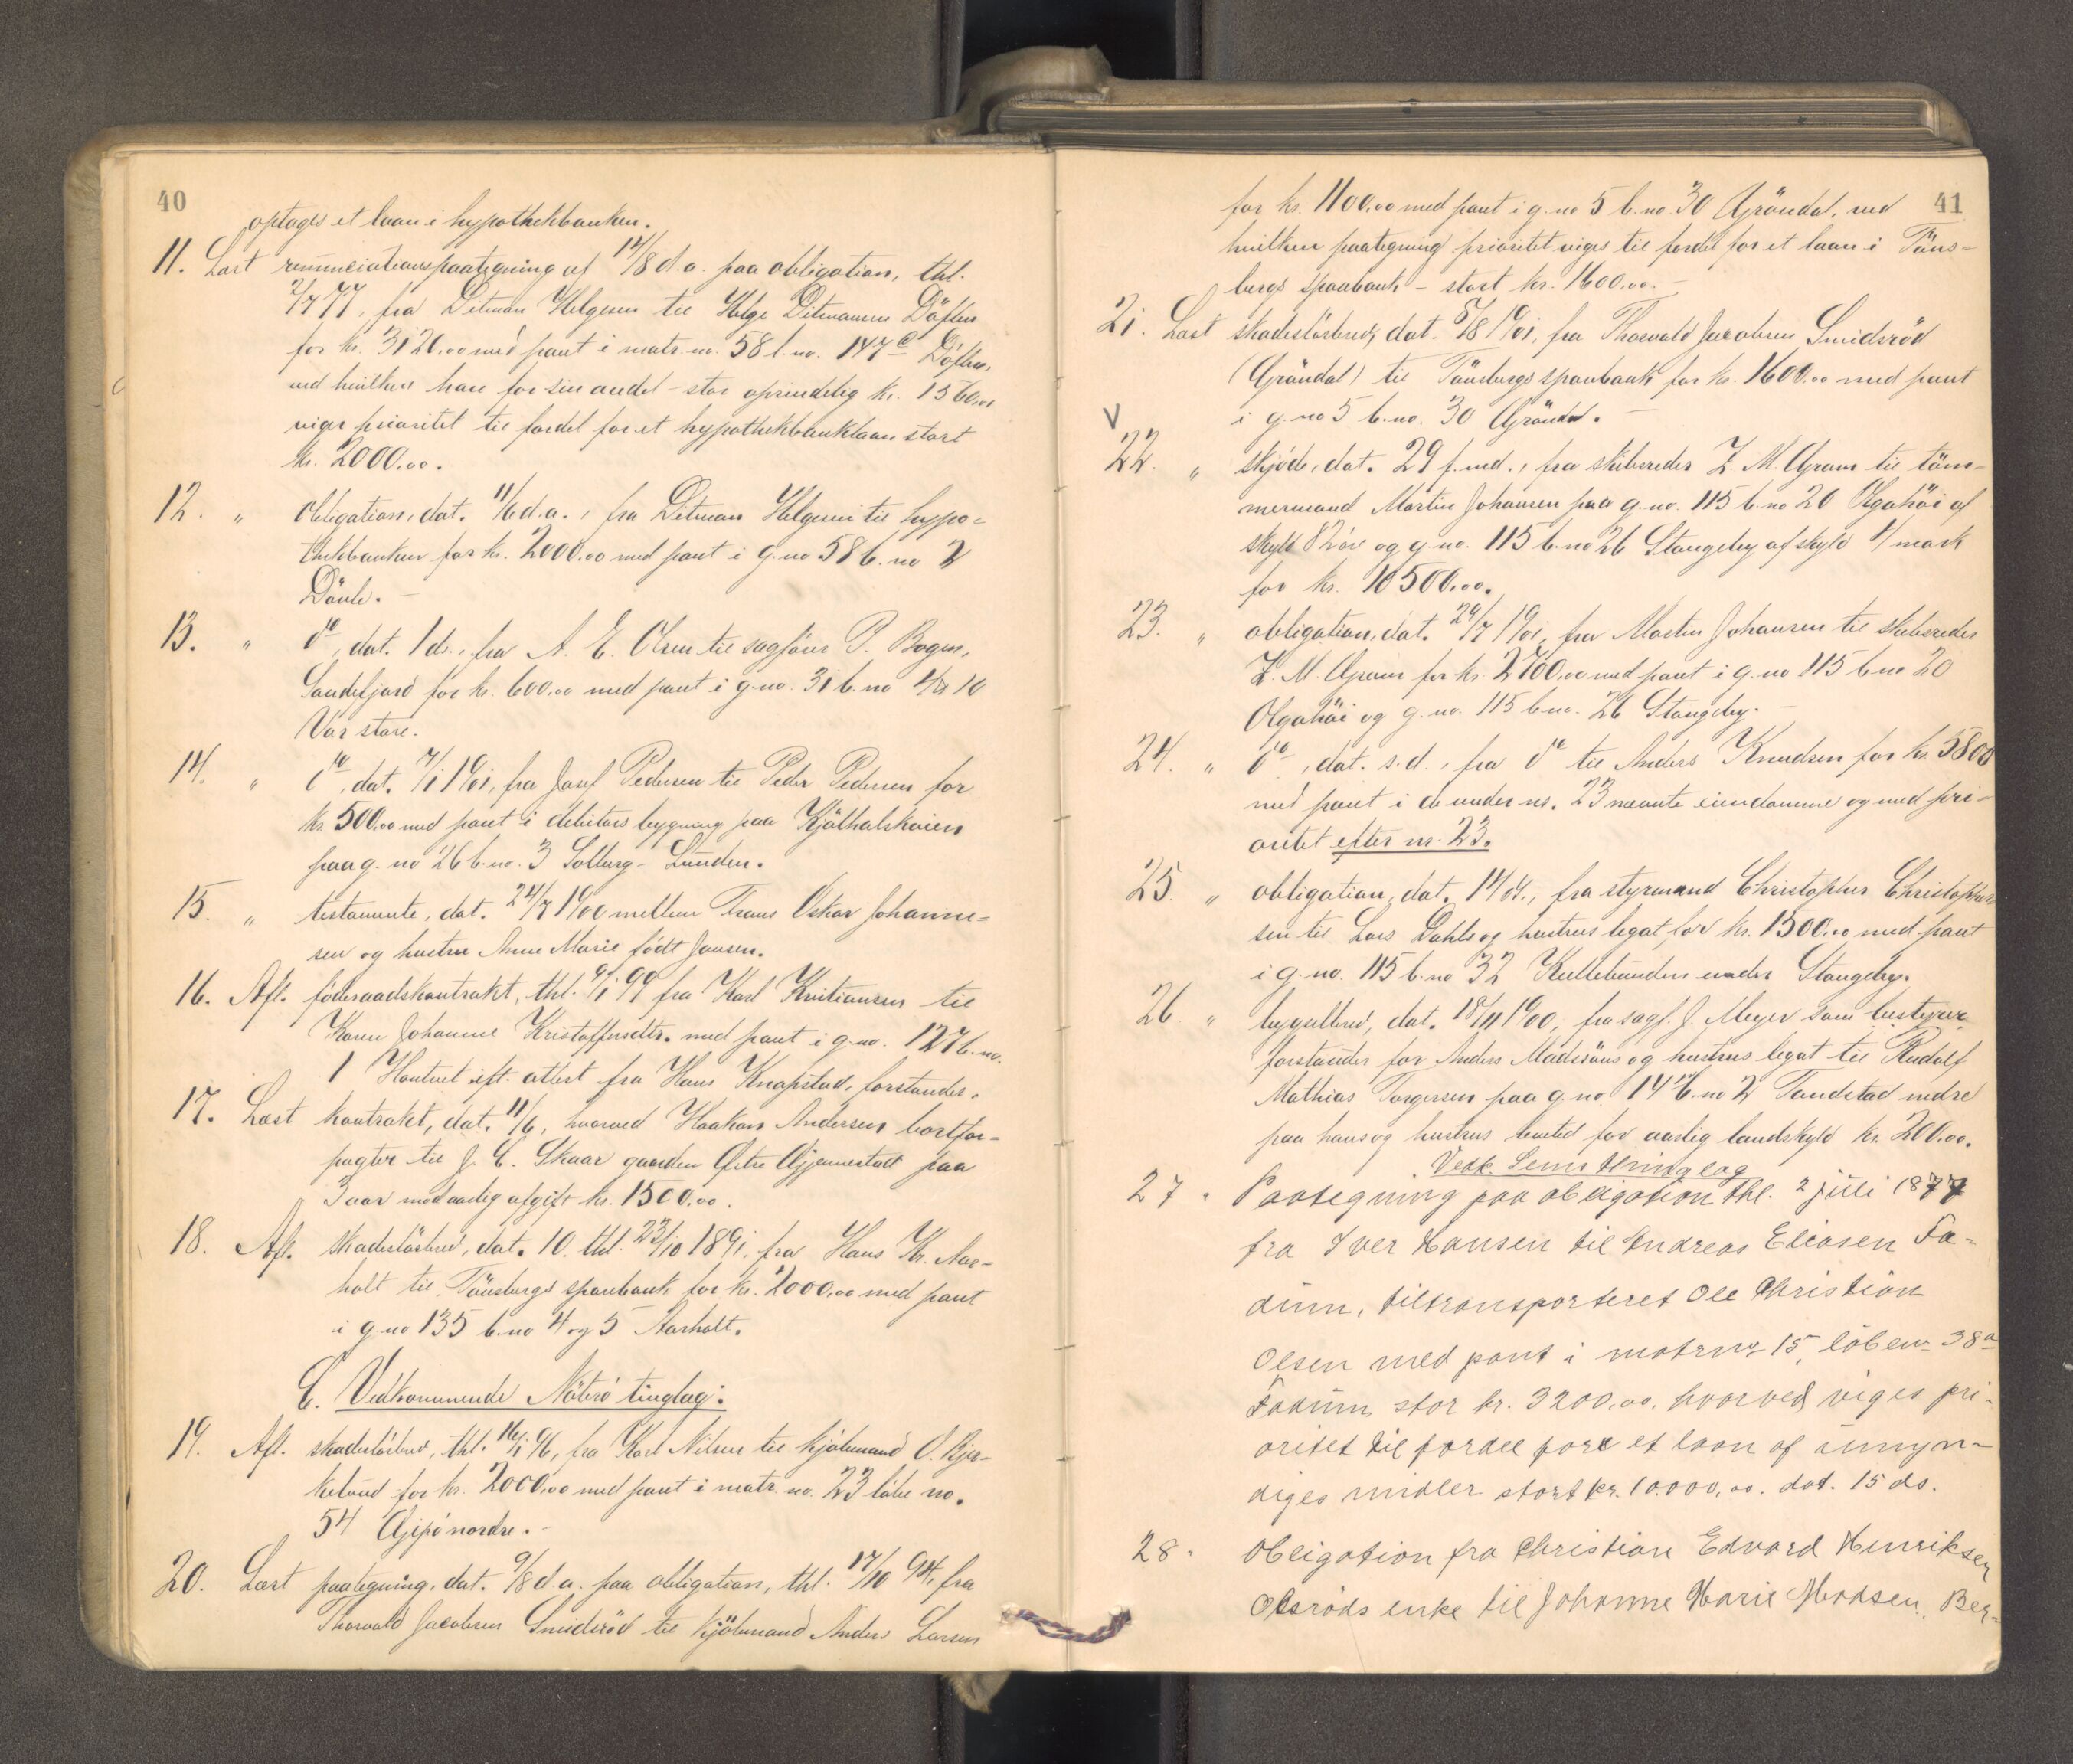 40
optages et laan i hypothekbanken.
11. Læst renunciationspaategning af 14/8 d.a. paa obligation, thl.
2/7 77, fra Ditman Helgesen til Helge Ditmansen
for kr. 3120,00 med pant i matr. no. 58 l. no. 147c
ved hvilken han for sin andel - stor oprindelig kr. 1560,00
viger prioritet til fordel for et hypothekbanklaan stort
kr. 2000,00.
12. " Obligation, dat. 11/6 d.a., fra Ditman Helgesen til hypo-
thekbanken for kr. 2000,00 med pant i g. no 58 b. no 2
13. " do, dat. 1 ds., fra A. E. Olsen til sagfører P. Bogen,
Sandefjord for kr. 600,00 med pant i g. no. 31 b. no 10
Vår store.
14. " do, dat. 7/1 1901, fra Josef Pedersen til Peder Pedersen for
kr. 500,00 med pant i debitors bygning paa Kjölhalskaien
paa g. no 26 b. no. 3 Solberg - Lunden.
15. " testamente, dat. 24/7 1900 mellem Frans Oskar Johanne-
sen og hustru Anne Marie født Jansen.
16. Afl. föderaadskontrakt, thl. 9/1 99 fra Karl Kristiansen til
Karen Johanne Kristoffersdtr. med pant i g. no. 127 b. no.
1 Hontvet ift. attest fra Hans Knapstad, forstander.
17. Læst kontrakt, dat. 11/6, hvorved Haakon Andersen bortfor-
pagter til J. C. Skaar gaarden Gjennestad paa
3 aar mod aarlig afgift kr. 1500,00.
18. Afl. skadeslösbrev, dat. 10. thl. 23/10 1891, fra Hans Kr. Aar-
holt til Tönsbergs sparebank for kr. 2000,00 med pant
i g. no 135 b. no 4 og 5 Aarholt.
C. Vedkommende Nöterö tinglag:
19. Afl. skadeslösbrev, thl. 16/1 96, fra Karl Nilsen til kjöbmand O. Bjer-
kelund for kr. 2000,00 med pant i matr. no. 23 löbe no.
54 Gipö nordre.
20. Læst paategning, dat. 9/8 d.a. paa obligation, thl. 17/10 94, fra
Thorvald Jacobsen Smidsröd til kjöbmand Anders Larsen
41
for kr. 1100,00 med pant i g. no 5 b. no. 30 Gröndal, ved
hvilken paategning prioritet viges til fordel for et laan i Töns-
bergs sparebank - stort kr. 1600,00.
21. Læst skadeslösbrev, dat. 5/8 1901, fra Thorvald Jacobsen Smidsröd
(Gröndal) til Tönsbergs sparebank for kr. 1600,00 med pant
i g. no 5 b. no. 30 Gröndal.
V
22. " skjöde, dat. 29 f. md., fra skibsreder Z. M. Gram til töm-
mermand Martin Johansen paa g. no. 115 b. no 20 Olgahöi af
skyld 82 öre og g. no. 115 b. no 26 Stangeby af skyld mark
for kr. 10500,00.
23. " obligation, dat. 29/7 1901, fra Martin Johansen til skibsreder
Z. M. Gram for kr. 2700,00 med pant i g. no 115 b no 20
Olgahöi og g. no. 115 b no. 26 Stangeby.
24. " do, dat. s. d., fra do til Anders Knudsen for kr. 5800
med pant i de under nr. 23 nævnte eiendomme og med pri-
oritet efter nr. 23.
25. " obligation, dat. fra styrmand Christopher Christopher
sen til Lars Dahls og hustrus legat for kr. 1500,00 med pant
i g. no. 115 b. no 32 Kullebunden under Stangeby.
26. " bygselbrev, dat. 18/11 1900, fra sagf. J. Meyer som bestyrer
forstander for Anders Madssöns og hustrus legat til Rudolf
Mathias Torgersen paa g. no. 14 b. no 2 Tandstad nedre
paa hans og hustrus levetid for aarlig landskyld kr. 200,00.
Vedk. Sems thinglag
27 " Paategning paa obligation thl. 2 juli 1877
fra Iver Hansen til Andreas Eliasen Fa-
dum, tiltransporteret Ole Christian
Olsen med pant i matrno 15, löbeno 38a
Fadum stor kr. 3200,00, hvorved viges pri-
oritet til fordel for et laan af umyn-
diges midler stort kr. 10.000,00. dat. 15 ds.
28 " Obligation fra Christian Edvard Henriksen
Olsröds enke til Johanne Marie Madsen, Ber-